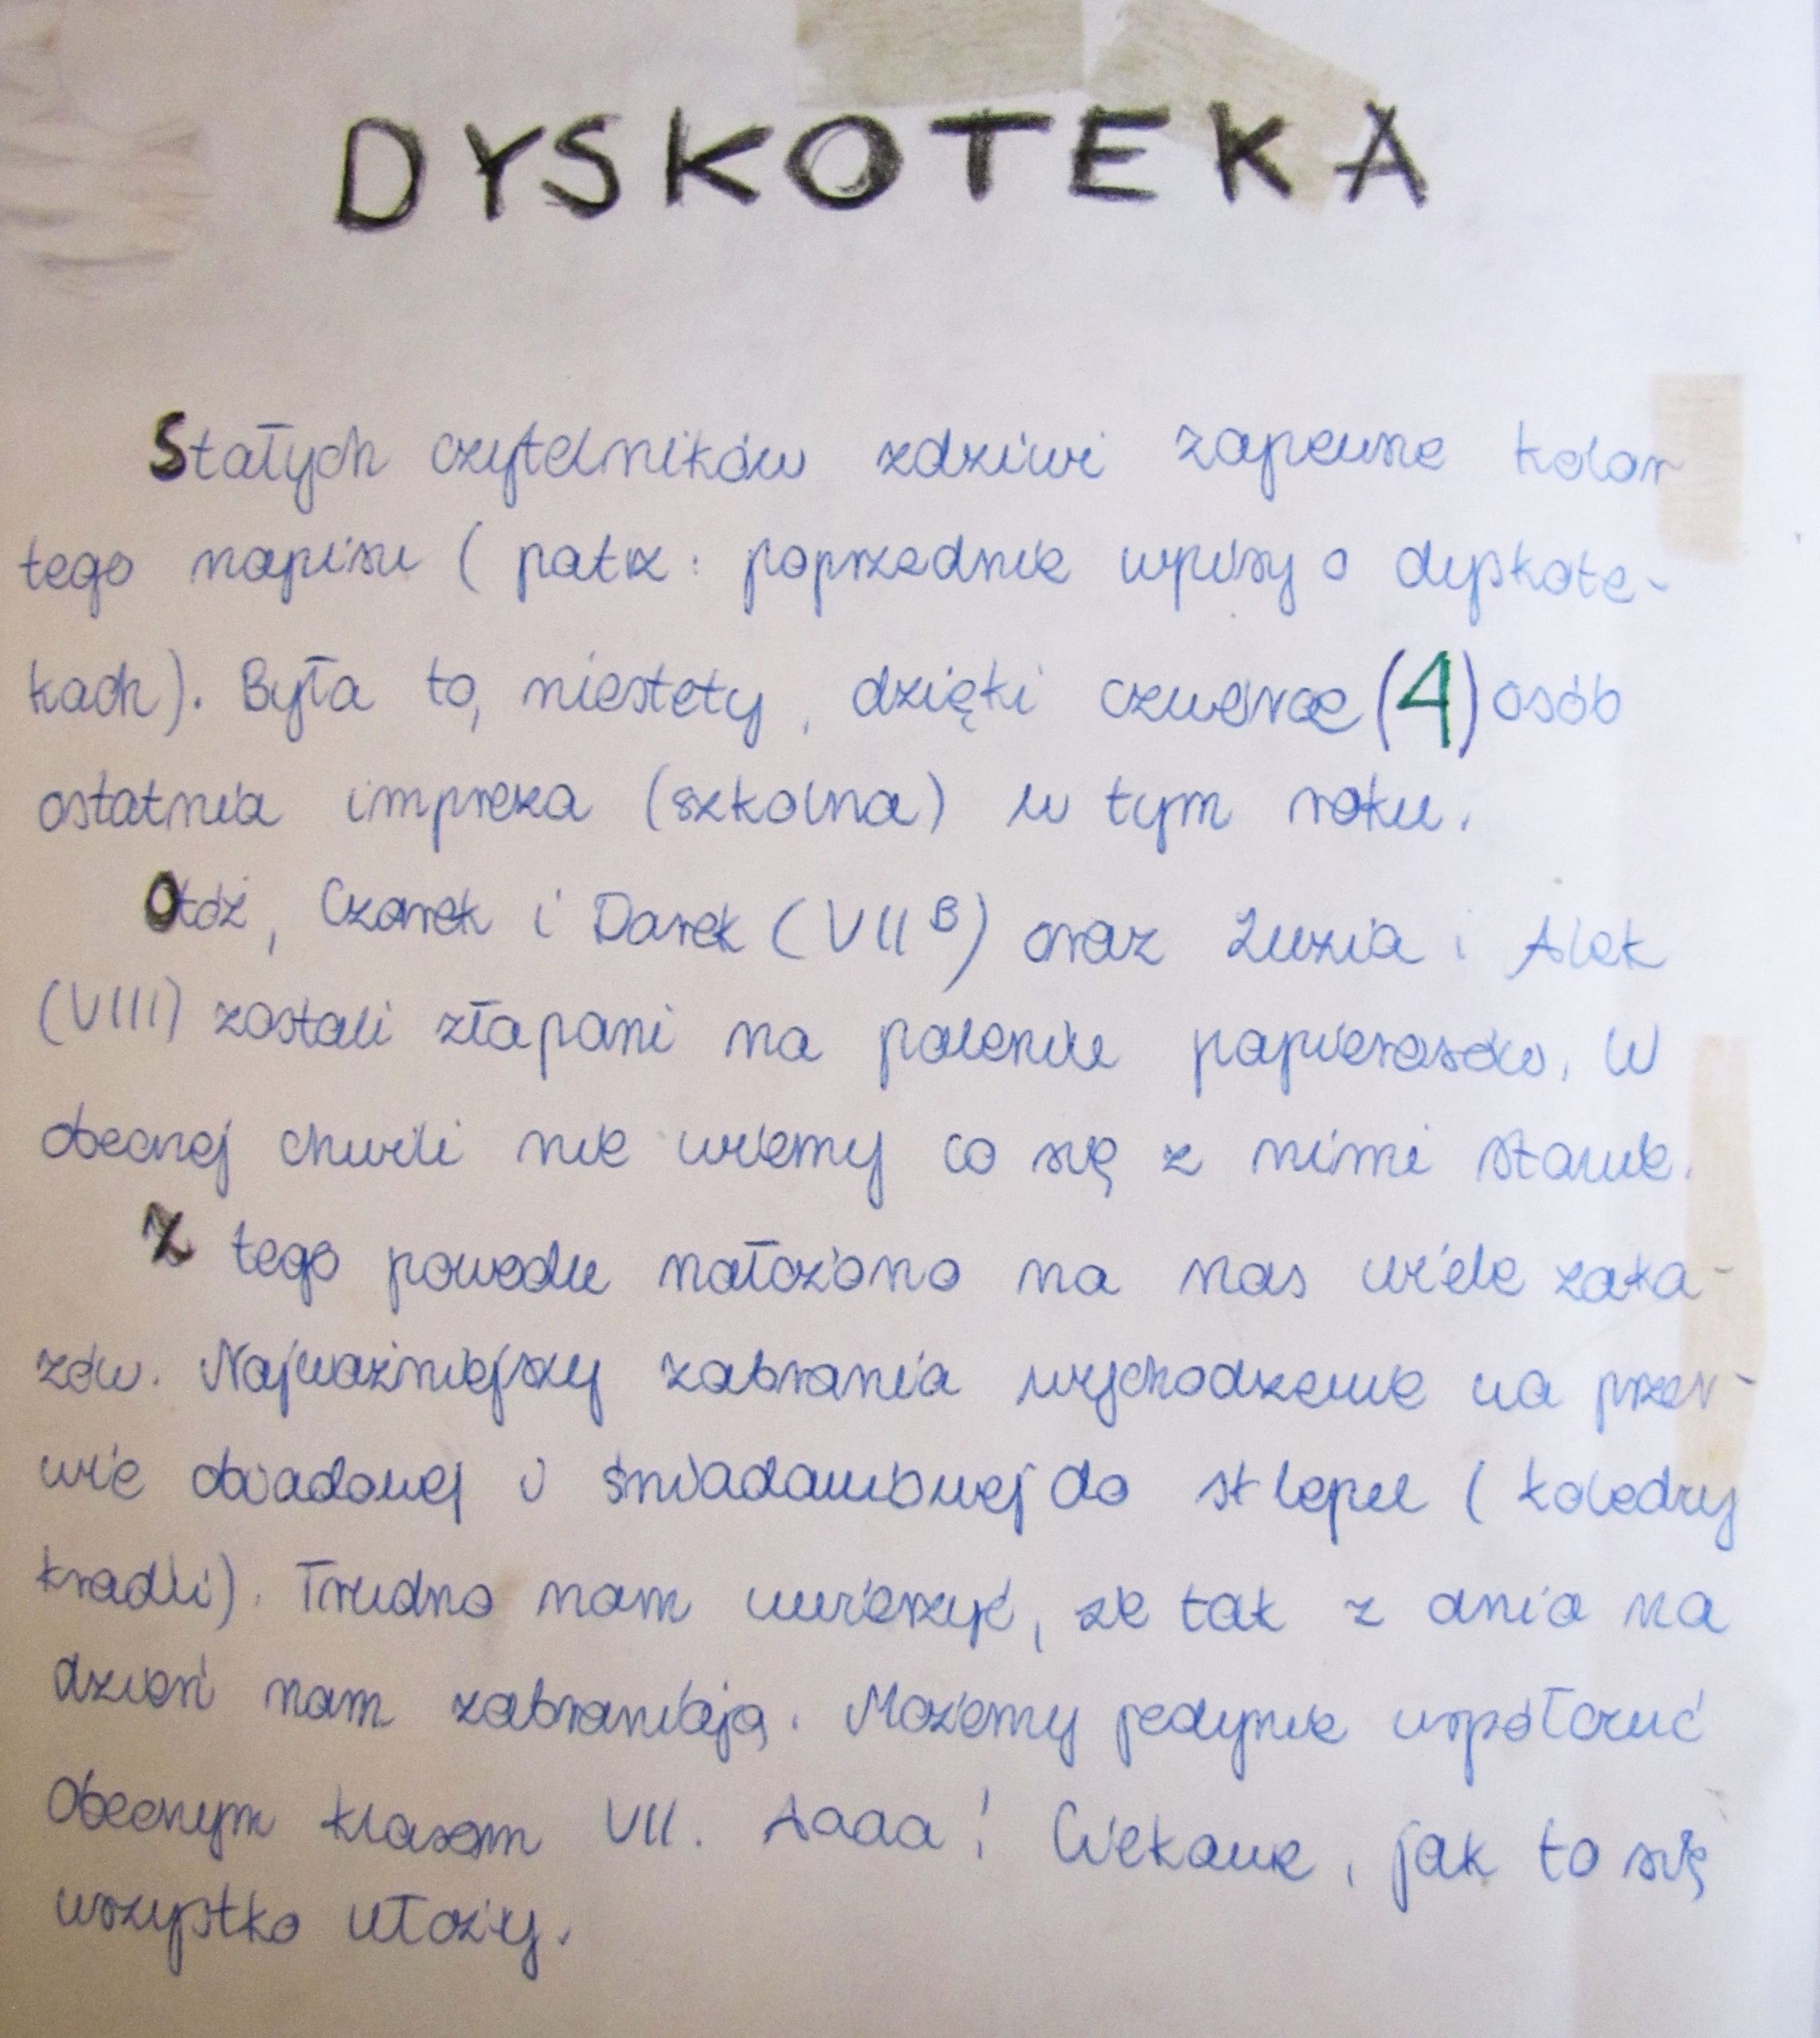 DYSKOTEKA
Stałych czytelników zdziwi zapewne kolor
tego napisu (patrz: poprzednie wpisy o dyskote-
kach). Była to, niestety, dzięki czwórce (4) osób
ostatnia impreza (szkolna) w tym roku.
Otóż, Czarek i Darek (VII B) oraz Luzia i Alek
(VIII) zostali złapani na paleniu papierosów. W
obecnej chwili nie wiemy co się z nimi stanie.
Z tego powodu nałożono na nas wiele zaka-
zów. Najważniejszy zabrania wychodzenie na przer-
wie obiadowej i śniadaniowej do sklepu (kolędry
kradli). Trudno nam uwierzyć, że tak z dnia na
dzień nam zabraniają. Możemy jedynie współczuć
Obecnym klasom VII. Aaaa! Ciekawe, jak to się
wszystko ułoży.